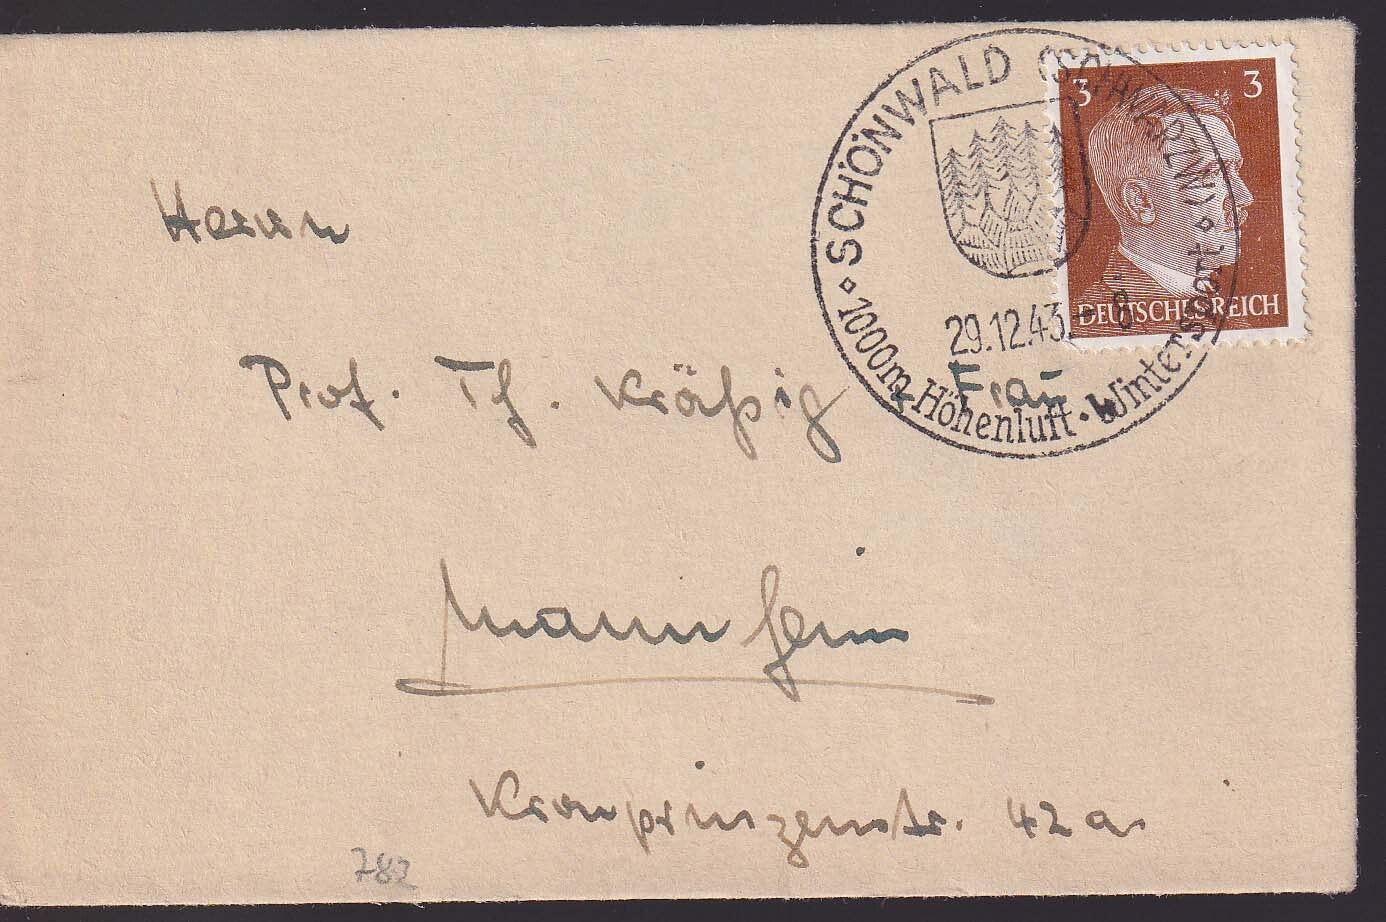 SCHÖNWALD (SCHWARZW)
3 3
29.12.43.-8
DEUTSCHES REICH
1000m-Höhenluft · Wintersport
Herrn
Prof. Th. Kräßig u. Frau
Mannheim
Kronprinzenstr. 42a
782